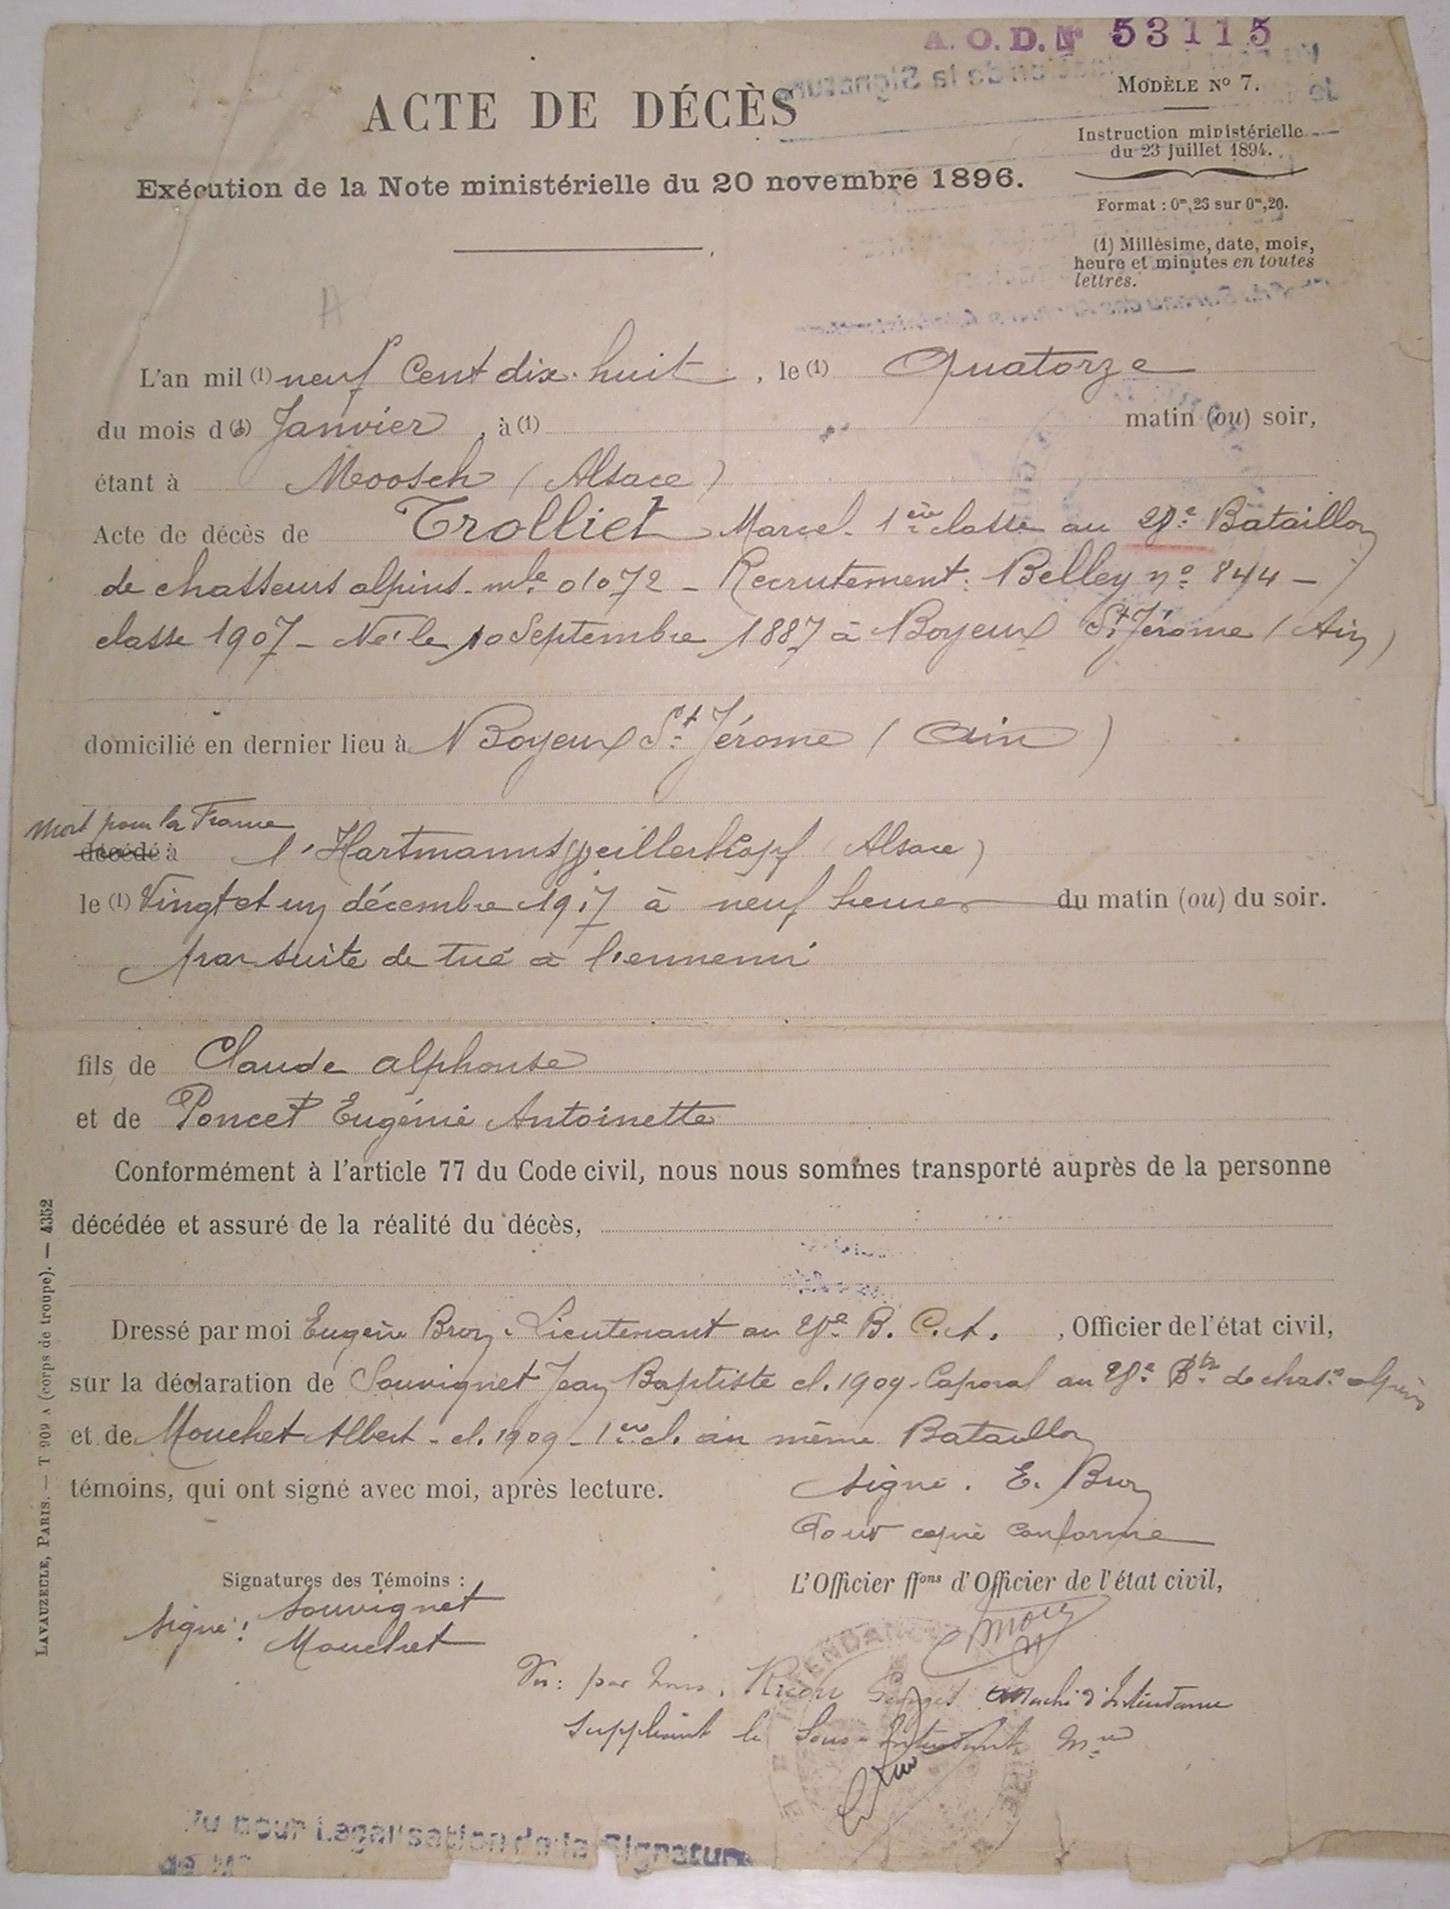 A. O. D. Nº 53115
MODÈLE Nº 7.
ACTE DE DÉCÈS
Instruction ministérielle
du 23 juillet 1894.
Exécution de la Note ministérielle du 20 novembre 1896.
Format : 0m,23 sur 0m,20.
(1) Millésime, date, mois,
heure et minutes en toutes
lettres.
L'an mil (1) neuf Cent dix-huit, le (1) Quatorze
du mois d (1) Janvier, à (1) matin (ou) soir,
étant à Moosch (Alsace)
Acte de décès de Trolliet Marcel. 1ère classe au 28e Bataillon
de chasseurs alpins. mle 01072 - Recrutement: Belley no 844 -
classe 1907 - Né le 10 Septembre 1887 à Boyeux St Jérome (Ain)
domicilié en dernier lieu à Boyeux St Jérome (Ain)
Mort pour la France
décédé à l'Hartmannsweillerkopf (Alsace)
le (1) Vingt et un décembre 1917 à neuf heures du matin (ou) du soir.
par suite de tué à l'ennemi
fils de Claude Alphonse
et de Poncet Eugénie Antoinette
Conformément à l'article 77 du Code civil, nous nous sommes transporté auprès de la personne
décédée et assuré de la réalité du décès,
Dressé par moi Eugène Broy. Lieutenant au 28e B. C. A. , Officier de l'état civil,
sur la déclaration de Souvignet Jean Baptiste cl. 1909 - Caporal au 28e Bon de chasrs alpins
et de Mouchet Albert - cl. 1909 - 1ere cl. au même Bataillon
témoins, qui ont signé avec moi, après lecture.
Signé. E. Broy
Pour copie conforme
Signatures des Témoins :
L'Officier ffons d'Officier de l'état civil,
Signé: Souvignet
Mouchet
Vu: par nous, Georges attaché d'Intendance
Suppléant le Sous-Intendant Mre
Vu pour Légalisation de la Signature
de Mr
LAVAUZELLE, PARIS. — T 909 A (corps de troupe). — 4352